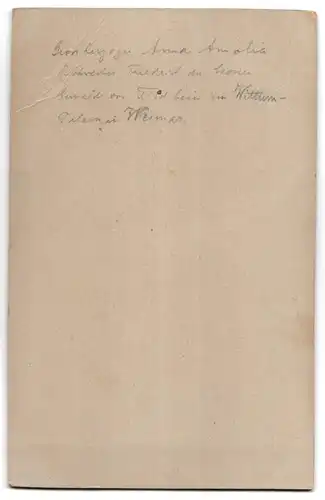 Grossherzogin Anna Amalia
Schwester Friedrich des Grossen
Gemälde von Tischbein im Wittum-
Palais zu Weimar.